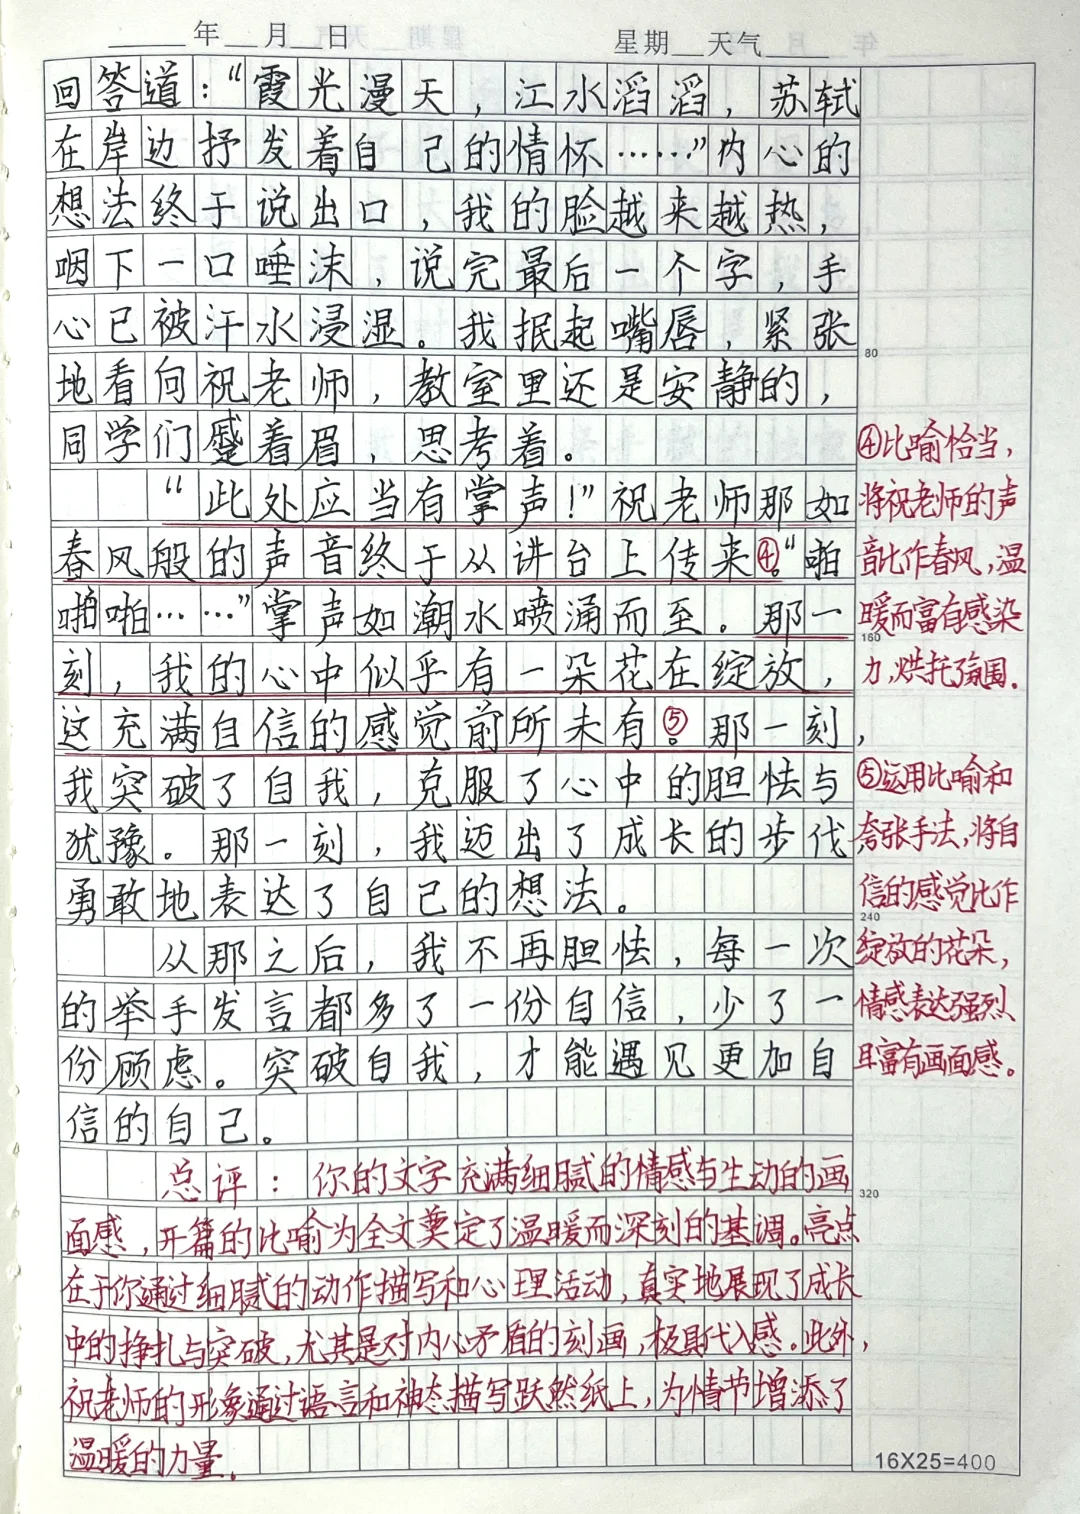 年 月 日 星期 天气
回答道：“霞光漫天，江水滔滔，苏轼
在岸边抒发着自己的情怀……”内心的
想法终于说出口，我的脸越来越热，
咽下一口唾沫，说完最后一个字，手
心已被汗水浸湿。我抿起嘴唇，紧张
80
地看向祝老师，教室里还是安静的，
同学们蹙着眉，思考着。
“此处应当有掌声！”祝老师那如
春风般的声音终于从讲台上传来④。“啪
啪啪……”掌声如潮水喷涌而至。那一
160
刻，我的心中似乎有一朵花在绽放，
这充满自信的感觉前所未有⑤。那一刻，
我突破了自我，克服了心中的胆怯与
犹豫。那一刻，我迈出了成长的步伐，
勇敢地表达了自己的想法。
240
从那之后，我不再胆怯，每一次
的举手发言都多了一份自信，少了一
份顾虑。突破自我，才能遇见更加自
信的自己。
④比喻恰当，
将祝老师的声
音比作春风，温
暖而富有感染
力，烘托了氛围。
⑤运用比喻和
夸张手法，将自
信的感觉比作
绽放的花朵，
情感表达强烈
且富有画面感。
总评：你的文字充满细腻的情感与生动的画
320
面感，开篇的比喻为全文奠定了温暖而深刻的基调。亮点
在于你通过细腻的动作描写和心理活动，真实地展现了成长
中的挣扎与突破，尤其是对内心矛盾的刻画，极具代入感。此外，
祝老师的形象通过语言和神态描写跃然纸上，为情节增添了
温暖的力量。
16X25=400